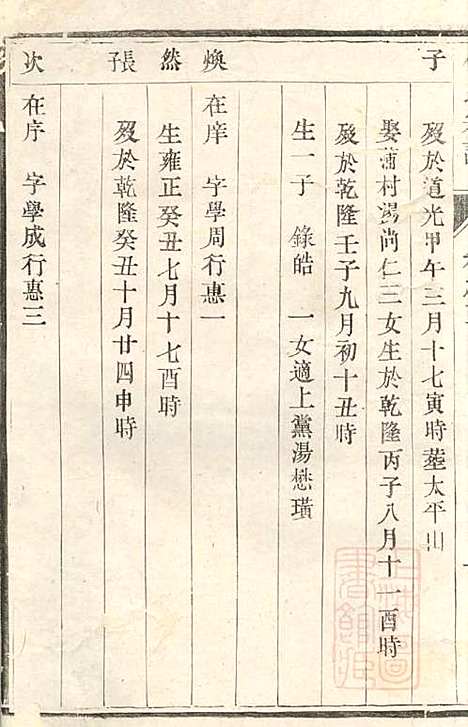 子
歿於道光甲午三月十七寅時塟太平山
娶蒲村湯尚仁三女生於乾隆丙子八月十一酉時
歿於乾隆壬子九月初十丑時
生一子 錄皓 一女適上黨湯懋璜
煥 在庠 字學周行惠一
然 生雍正癸丑七月十七酉時
長 歿於乾隆癸丑十月廿四申時
次 在序 字學成行惠三